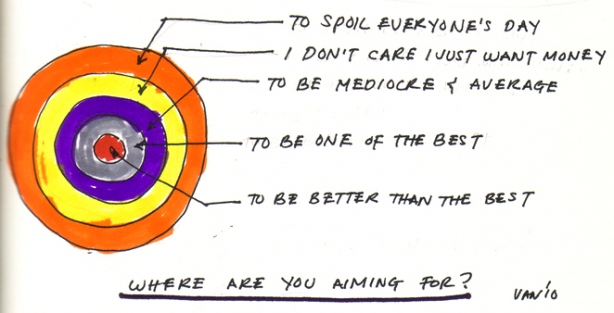 TO SPOIL EVERYONE'S DAY
I DON'T CARE I JUST WANT MONEY
TO BE MEDIOCRE & AVERAGE
TO BE ONE OF THE BEST
TO BE BETTER THAN THE BEST
WHERE ARE YOU AIMING FOR?
VAN'10